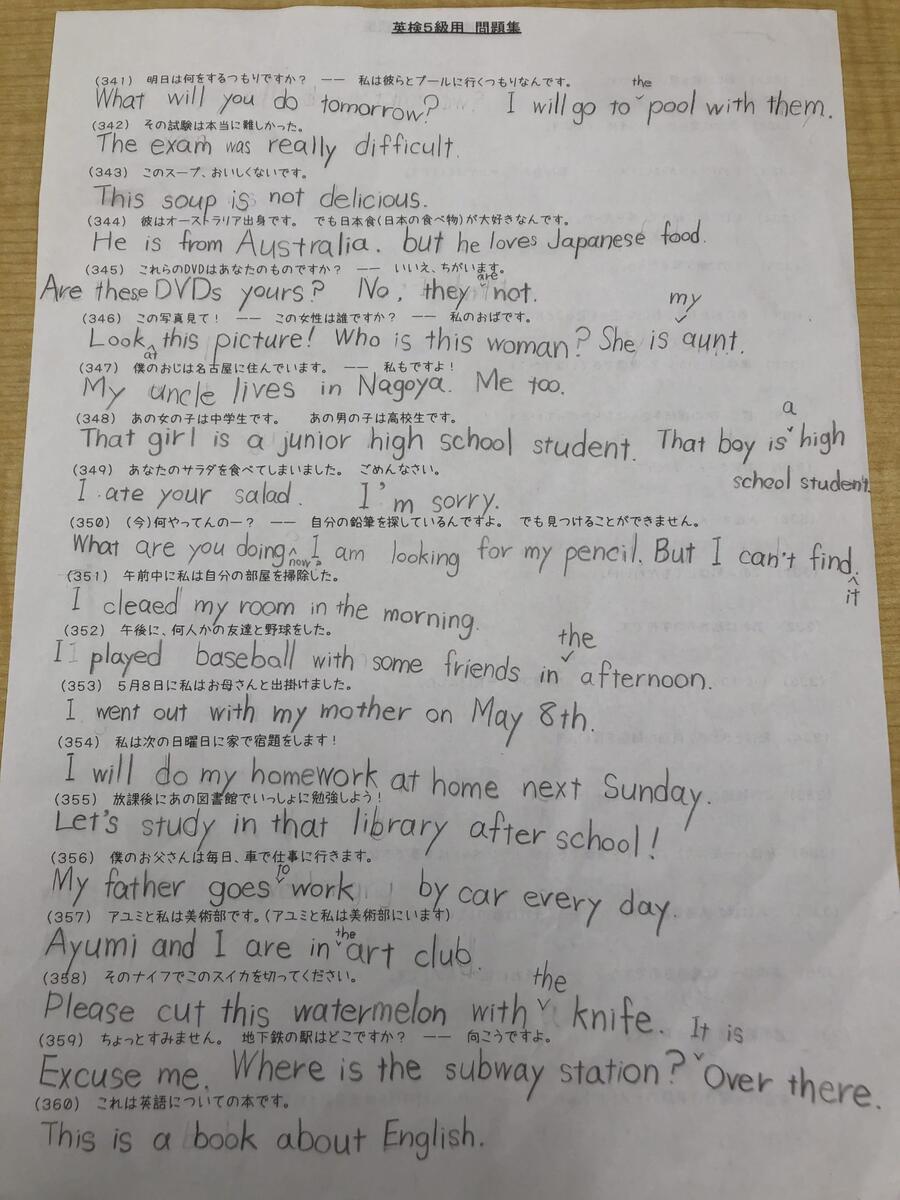 英検5級用 問題集
(341) 明日は何をするつもりですか? ―― 私は彼らとプールに行くつもりなんです。
What will you do tomorrow? I will go to the pool with them.
(342) その試験は本当に難しかった。
The exam was really difficult.
(343) このスープ、おいしくないです。
This soup is not delicious.
(344) 彼はオーストラリア出身です。 でも日本食(日本の食べ物)が大好きなんです。
He is from Australia. but he loves Japanese food.
(345) これらのDVDはあなたのものですか? ―― いいえ、ちがいます。
Are these DVDs yours? No, they are not.
(346) この写真見て! ―― この女性は誰ですか? ―― 私のおばです。
Look at this picture! Who is this woman? She is my aunt.
(347) 僕のおじは名古屋に住んでいます。 ―― 私もですよ!
My uncle lives in Nagoya. Me too.
(348) あの女の子は中学生です。 あの男の子は高校生です。
That girl is a junior high school student. That boy is a high
school student.
(349) あなたのサラダを食べてしまいました。 ごめんなさい。
I ate your salad. I'm sorry.
(350) (今)何やってんのー? ―― 自分の鉛筆を探しているんですよ。 でも見つけることができません。
What are you doing now? I am looking for my pencil. But I can't find it.
(351) 午前中に私は自分の部屋を掃除した。
I cleaed my room in the morning.
(352) 午後に、何人かの友達と野球をした。
I played baseball with some friends in the afternoon.
(353) 5月8日に私はお母さんと出掛けました。
I went out with my mother on May 8th.
(354) 私は次の日曜日に家で宿題をします!
I will do my homework at home next Sunday.
(355) 放課後にあの図書館でいっしょに勉強しよう!
Let's study in that library after school!
(356) 僕のお父さんは毎日、車で仕事に行きます。
My father goes to work by car every day.
(357) アユミと私は美術部です。(アユミと私は美術部にいます)
Ayumi and I are in the art club.
(358) そのナイフでこのスイカを切ってください。
Please cut this watermelon with the knife.
(359) ちょっとすみません。 地下鉄の駅はどこですか? ―― 向こうですよ。
Excuse me. Where is the subway station? It is Over there.
(360) これは英語についての本です。
This is a book about English.